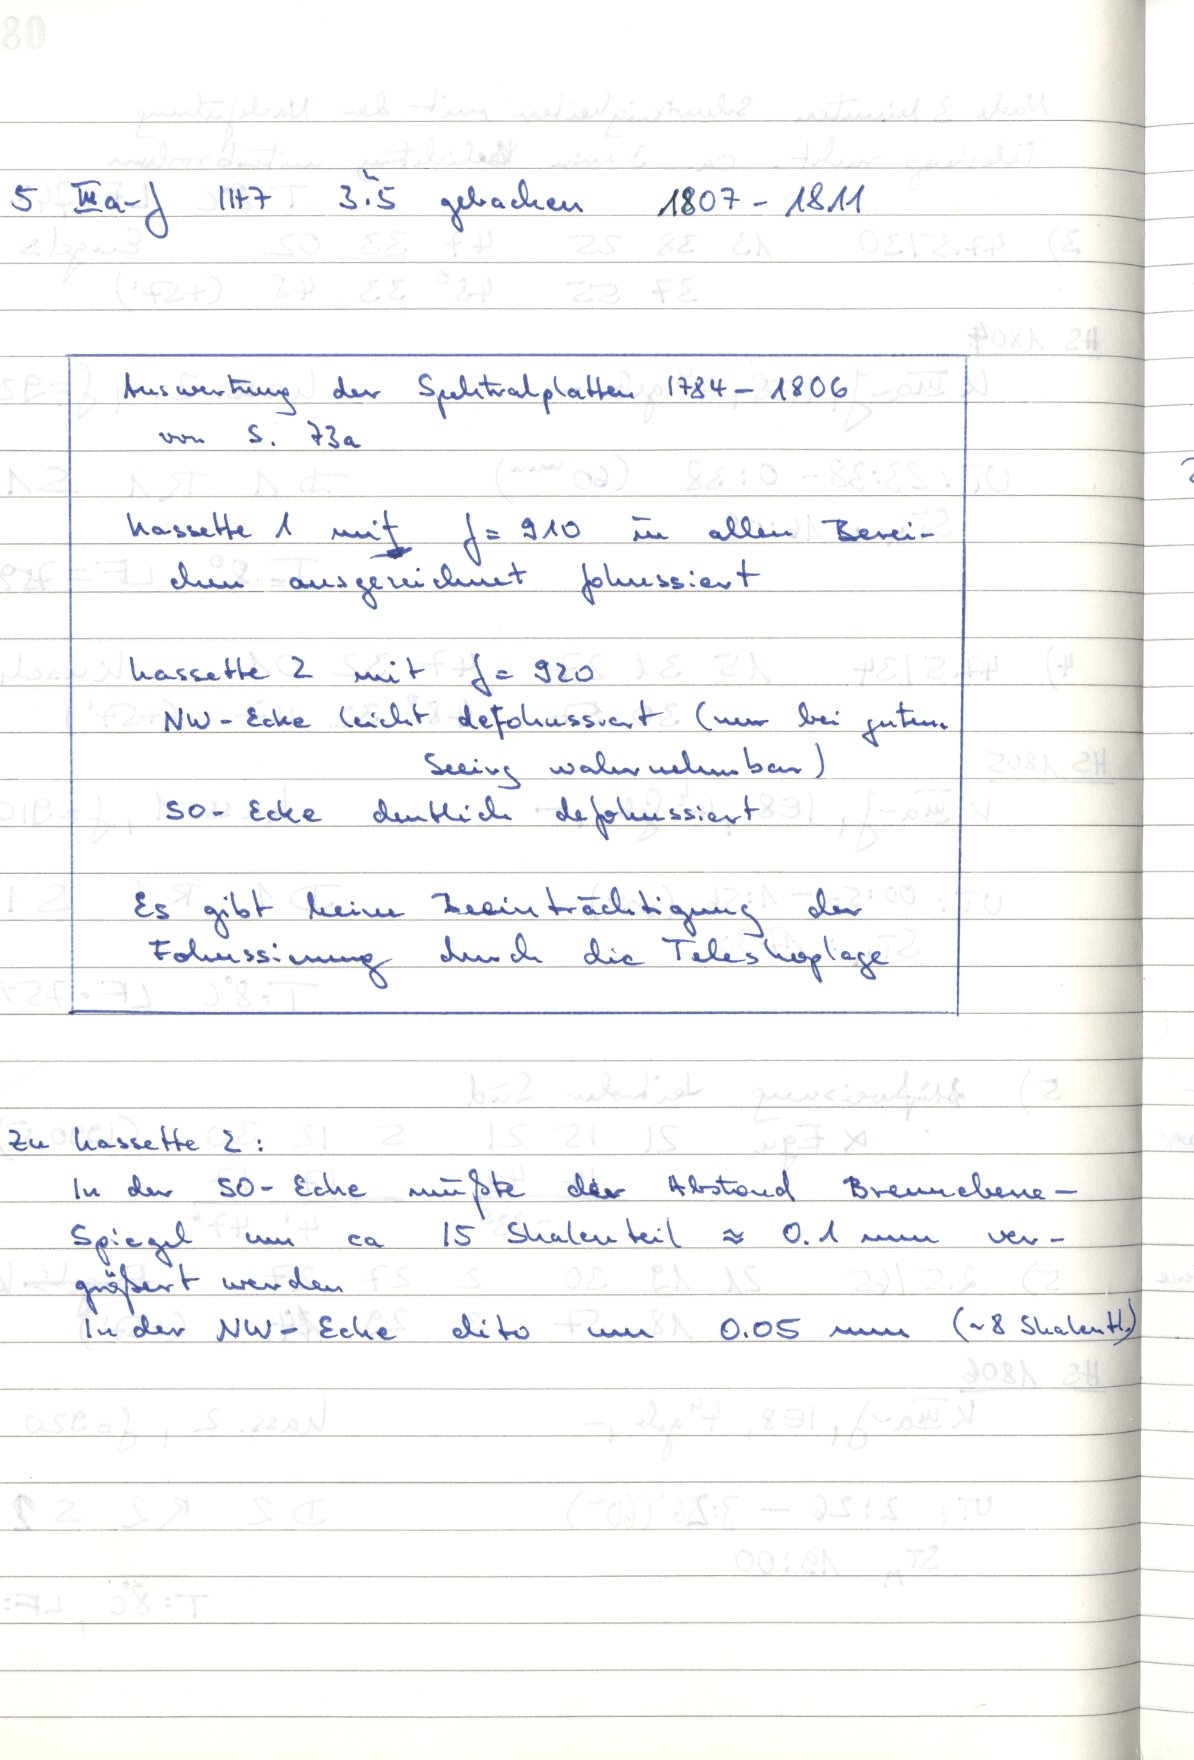 5 IIIa-J 1H7 3.5ʰ gebacken 1807 - 1811
Auswertung der Spektralplatten 1784 - 1806
von S. 73a
Kassette 1 mit f = 910 in allen Berei-
chen ausgezeichnet fokussiert
Kassette 2 mit f = 920
NW-Ecke leicht defokussiert (nur bei gutem
Seeing wahrnehmbar)
SO-Ecke deutlich defokussiert
Es gibt keine Beeinträchtigung der
Fokussierung durch die Teleskoplage
Zu Kassette 2:
In der SO-Ecke müßte der Abstand Brennebene-
Spiegel um ca 15 Skalenteil ≈ 0.1 mm ver-
größert werden
In der NW-Ecke dito um 0.05 mm (~8 Skalentl.)